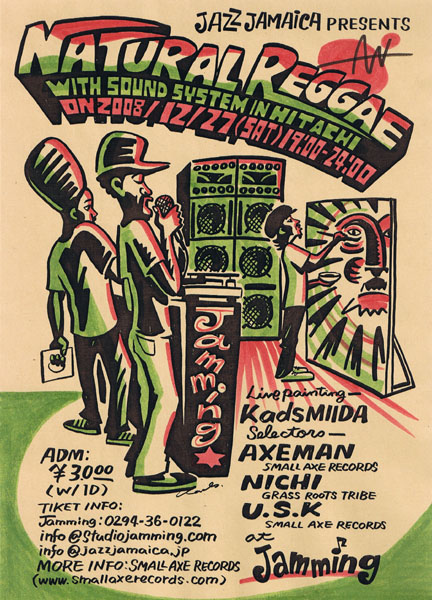 JAZZ JAMAICA PRESENTS
NATURAL REGGAE
WITH SOUND SYSTEM IN HITACHI
ON 2008/12/27(SAT)19:00-29:00
Jamming
Livepainting—
KadsMIIDA
Selectors—
AXEMAN
SMALL AXE RECORDS
NICHI
GRASS ROOTS TRIBE
U.S.K
SMALL AXE RECORDS
at
Jamming
ADM:
¥3,000
(W/1D)
TIKET INFO:
Jamming:0294-36-0122
info@Studiojamming.com
info@Jazzjamaica.jp
MORE INFO:SMALL AXE RECORDS
(www.smallaxerecords.com)